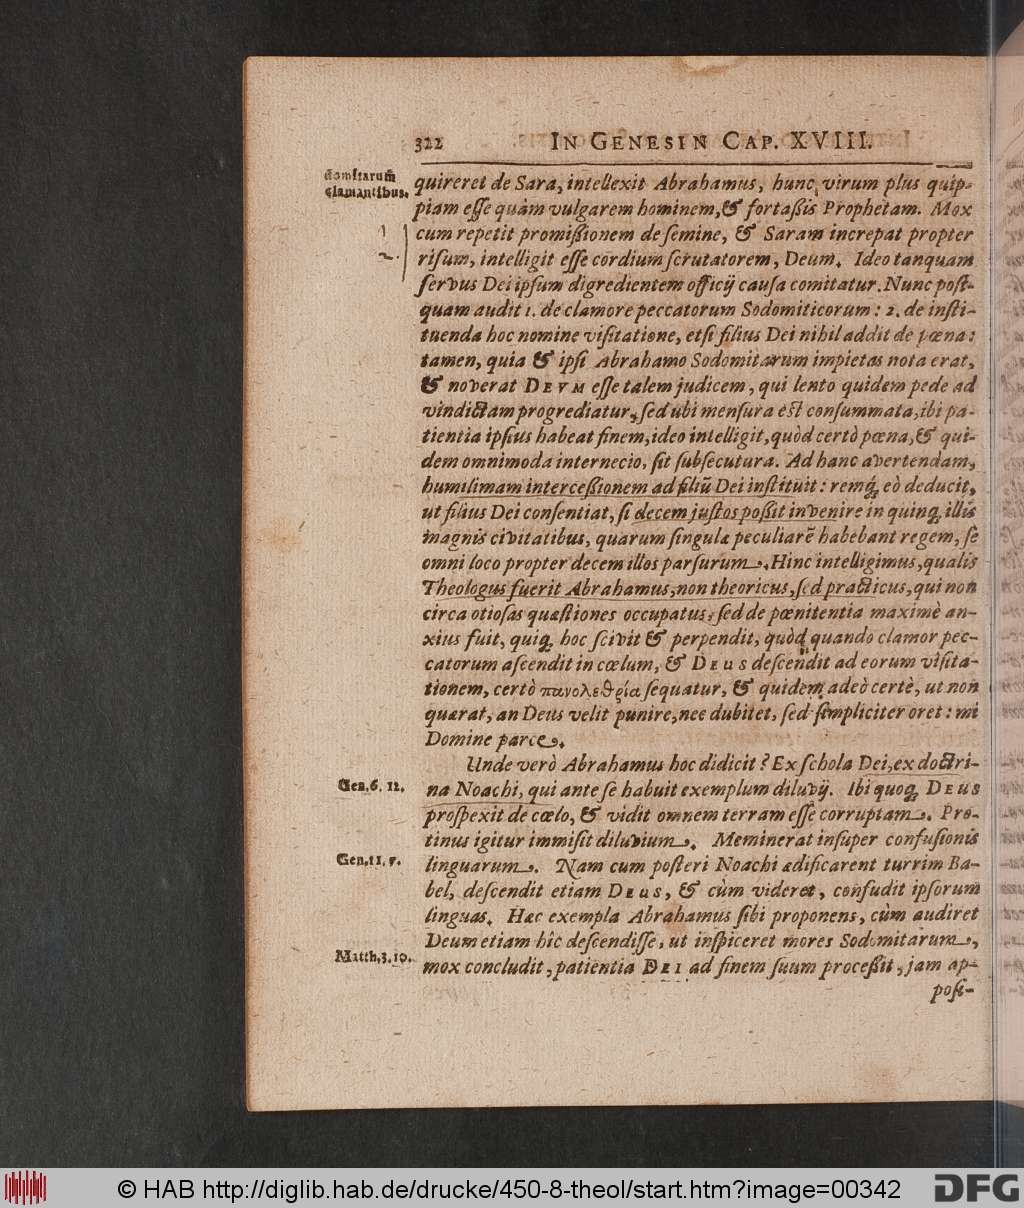 322 IN GENESIN CAP. XVIII.
domitarum̃
clamantibus.
quireret de Sara, intellexit Abrahamus, hunc virum plus quip-
piam eſſe quàm vulgarem hominem, & fortaßis Prophetam. Mox
cum repetit promißionem de ſemine, & Saram increpat propter
riſum, intelligit eſſe cordium ſcrutatorem, Deum. Ideo tanquam
ſervus Dei ipſum digredientem officij cauſa comitatur. Nunc poſt-
quam audit 1. de clamore peccatorum Sodomiticorum: 2. de inſti-
tuenda hoc nomine viſitatione, etſi filius Dei nihil addit de pœna:
tamen, quia & ipſi Abrahamo Sodomitarum impietas nota erat,
& noverat DEVM eſſe talem judicem, qui lento quidem pede ad
vindictam progrediatur, ſed ubi menſura est conſummata, ibi pa-
tientia ipſius habeat finem, ideo intelligit, quòd certò pœna, & qui-
dem omnimoda internecio, ſit ſubſecutura. Ad hanc avertendam,
humilimam interceßionem ad filiũ Dei inſtituit: remq́; eò deducit,
ut filius Dei conſentiat, ſi decem juſtos poßit invenire in quinq; illis
magnis civitatibus, quarum ſingulæ peculiarẽ habebant regem, ſe
omni loco propter decem illos parſurum. Hinc intelligimus, qualis
Theologus fuerit Abrahamus, non theoricus, ſed practicus, qui non
circa otioſas quæſtiones occupatus, ſed de pœnitentia maximè an-
xius fuit, quiq; hoc ſcivit & perpendit, quòd quando clamor pec-
catorum aſcendit in cœlum, & DEUS deſcendit ad eorum viſita-
tionem, certò πανολεθρία ſequatur, & quidem adeò certè, ut non
quærat, an Deus velit punire, nec dubitet, ſed ſimpliciter oret: mi
Domine parce.
Unde verò Abrahamus hoc didicit? Ex ſchola Dei, ex doctri-
Gen. 6. 12.
na Noachi, qui ante ſe habuit exemplum diluvij. Ibi quoq; DEUS
proſpexit de cœlo, & vidit omnem terram eſſe corruptam. Pro-
tinus igitur immiſit diluvium. Meminerat inſuper confuſionis
Gen. 11. 7.
linguarum. Nam cum poſteri Noachi ædificarent turrim Ba-
bel, deſcendit etiam DEUS, & cùm videret, confudit ipſorum
linguas. Hæc exempla Abrahamus ſibi proponens, cùm audiret
Deum etiam hîc deſcendiſſe, ut inſpiceret mores Sodomitarum,
Matth. 3. 10.
mox concludit, patientia DEI ad finem ſuum proceßit, jam ap-
poſi-
© HAB http://diglib.hab.de/drucke/450-8-theol/start.htm?image=00342
DFG